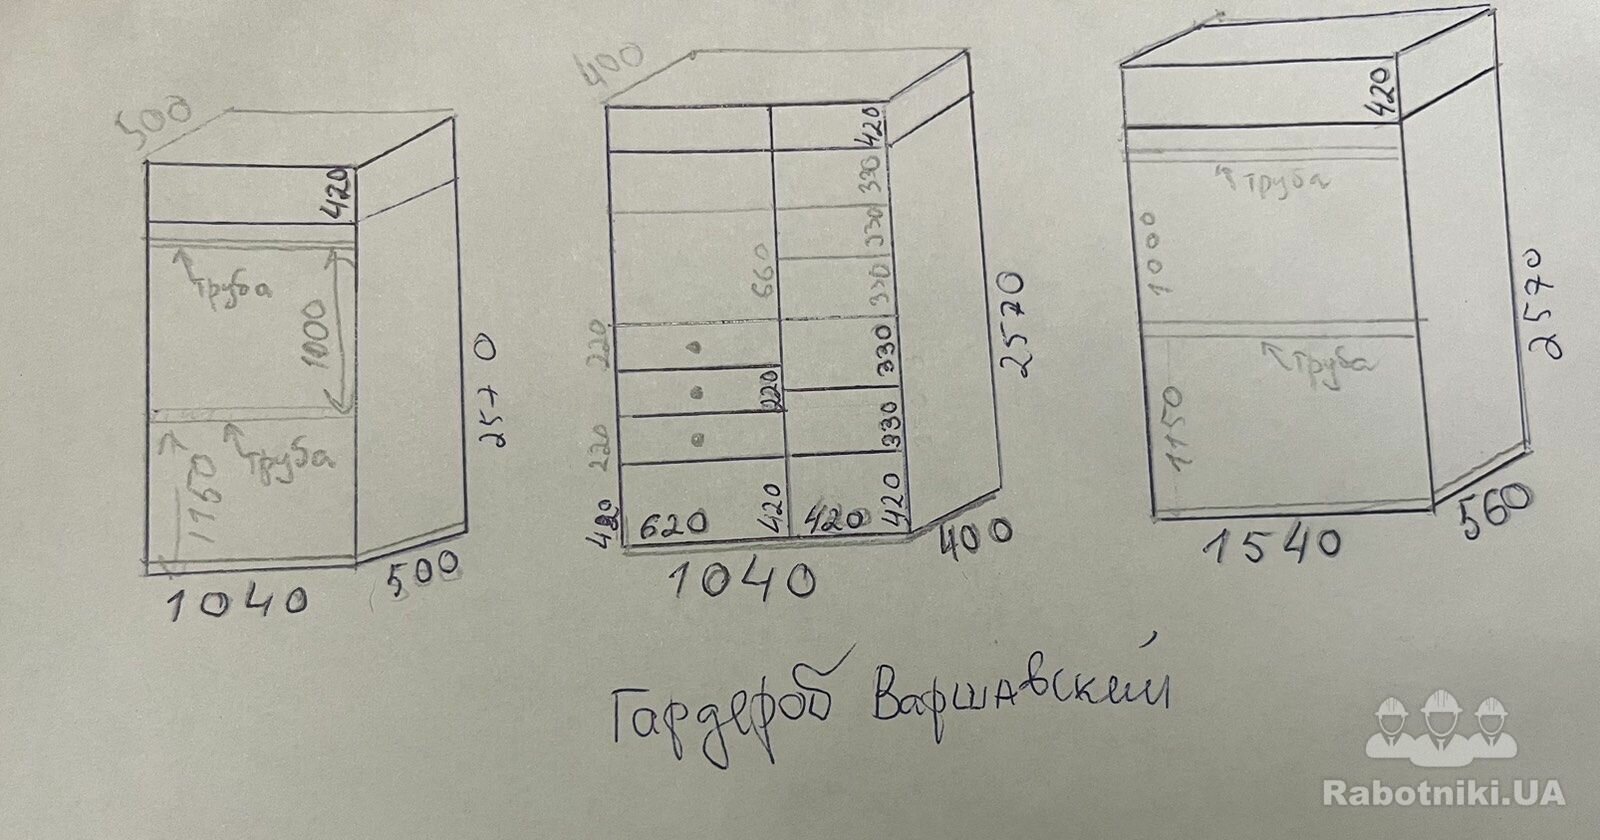 500
420
труба
1000
2570
труба
1150
1040
500
400
420
330
330
660
330
220
330
220
220
330
420
620
420
420
420
2570
400
1040
420
труба
1000
труба
1150
2570
1540
560
Гардероб Варшавский
Rabotniki.UA